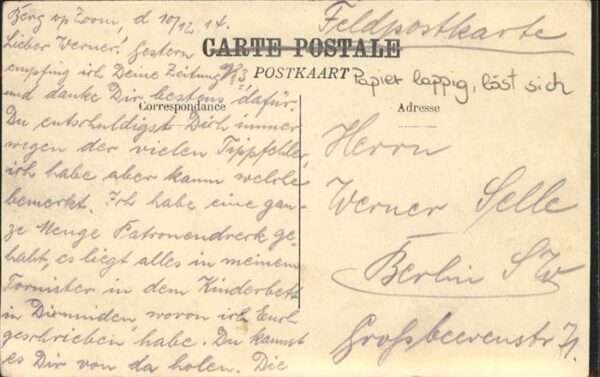 Berg op Zoom, d 10/12. 14.
Feldpostkarte
Lieber Werner! Gestern
CARTE POSTALE
empfing ich Deine Zeitung
POSTKAART
Papier lappig, löst sich
und danke Dir bestens dafür.
Correspondance
Adresse
Du entschuldigst Dich immer
wegen der vielen Tippfehler,
ich habe aber kaum welche
bemerkt. Ich habe eine gan-
ze Menge Patronendreck ge-
habt, es liegt alles in meinem
Tornister in dem Kinderbett
in Dixmuiden, wovon ich Euch
geschrieben habe. Du kannst
es Dir von da holen. Die
Herrn
Werner Selle
Berlin SW
Großbeerenstr. 71.